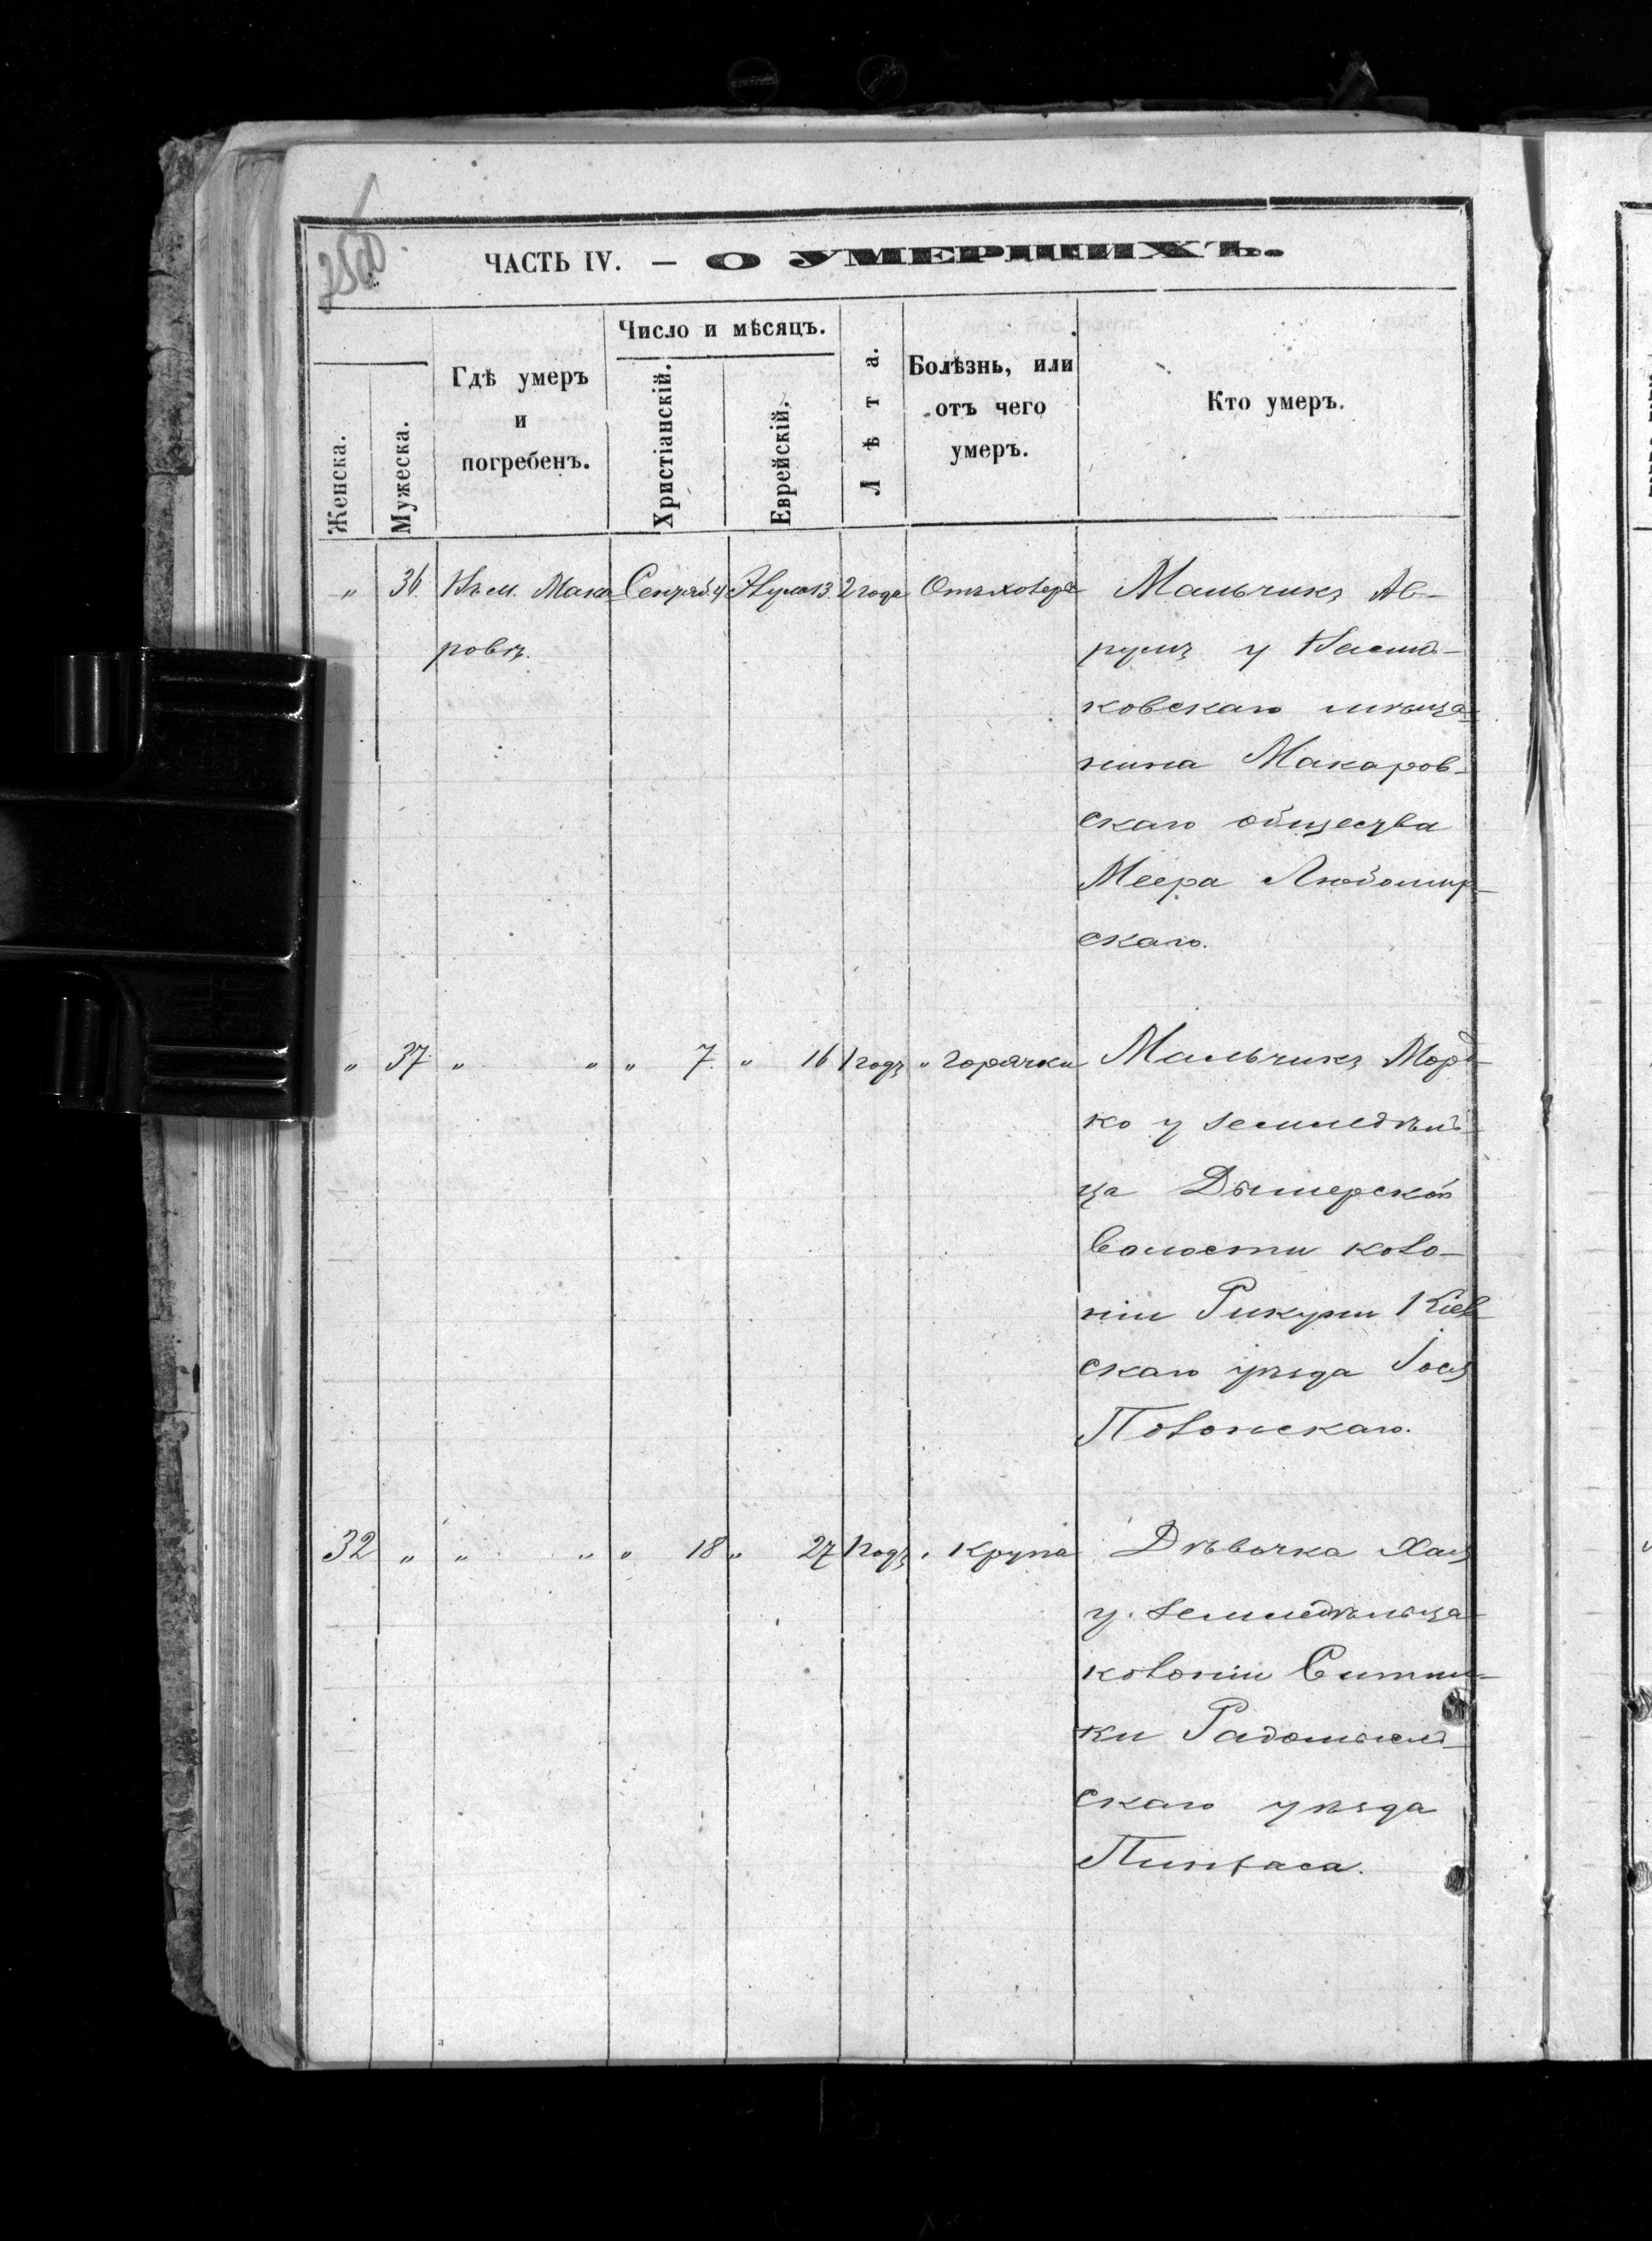 ЧАСТЬ IV. — О УМЕРШИХЪ.
Женска.
Мужеска.
Гдѣ умеръ
и
погребенъ.
Число и мѣсяцъ.
Христіанскій.
Еврейскій.
Лѣта.
Болѣзнь, или
отъ чего
умеръ.
Кто умеръ.
„ 36 Въ м. Мака- 4 13 2 года Отъ холеры Мальчикъ Ав-
ровѣ. румъ у
ковскаго мѣща-
нина Макаров-
скаго общества
Меера Любомир-
скаго.
„ 37. „ „ „ 7. „ 16 1 годъ „ горячки Мальчикъ Морд-
ко у земледѣль-
ца Дымерской
волости коло-
ніи Рикуни Кіев-
скаго уѣзда Іося
Полонскаго.
32 „ „ „ „ 18 „ 27 1 годъ „ крупа Дѣвочка Хая
у земледѣльца
колоніи Ситня-
ки Радомысль-
скаго уѣзда
Пинхаса.